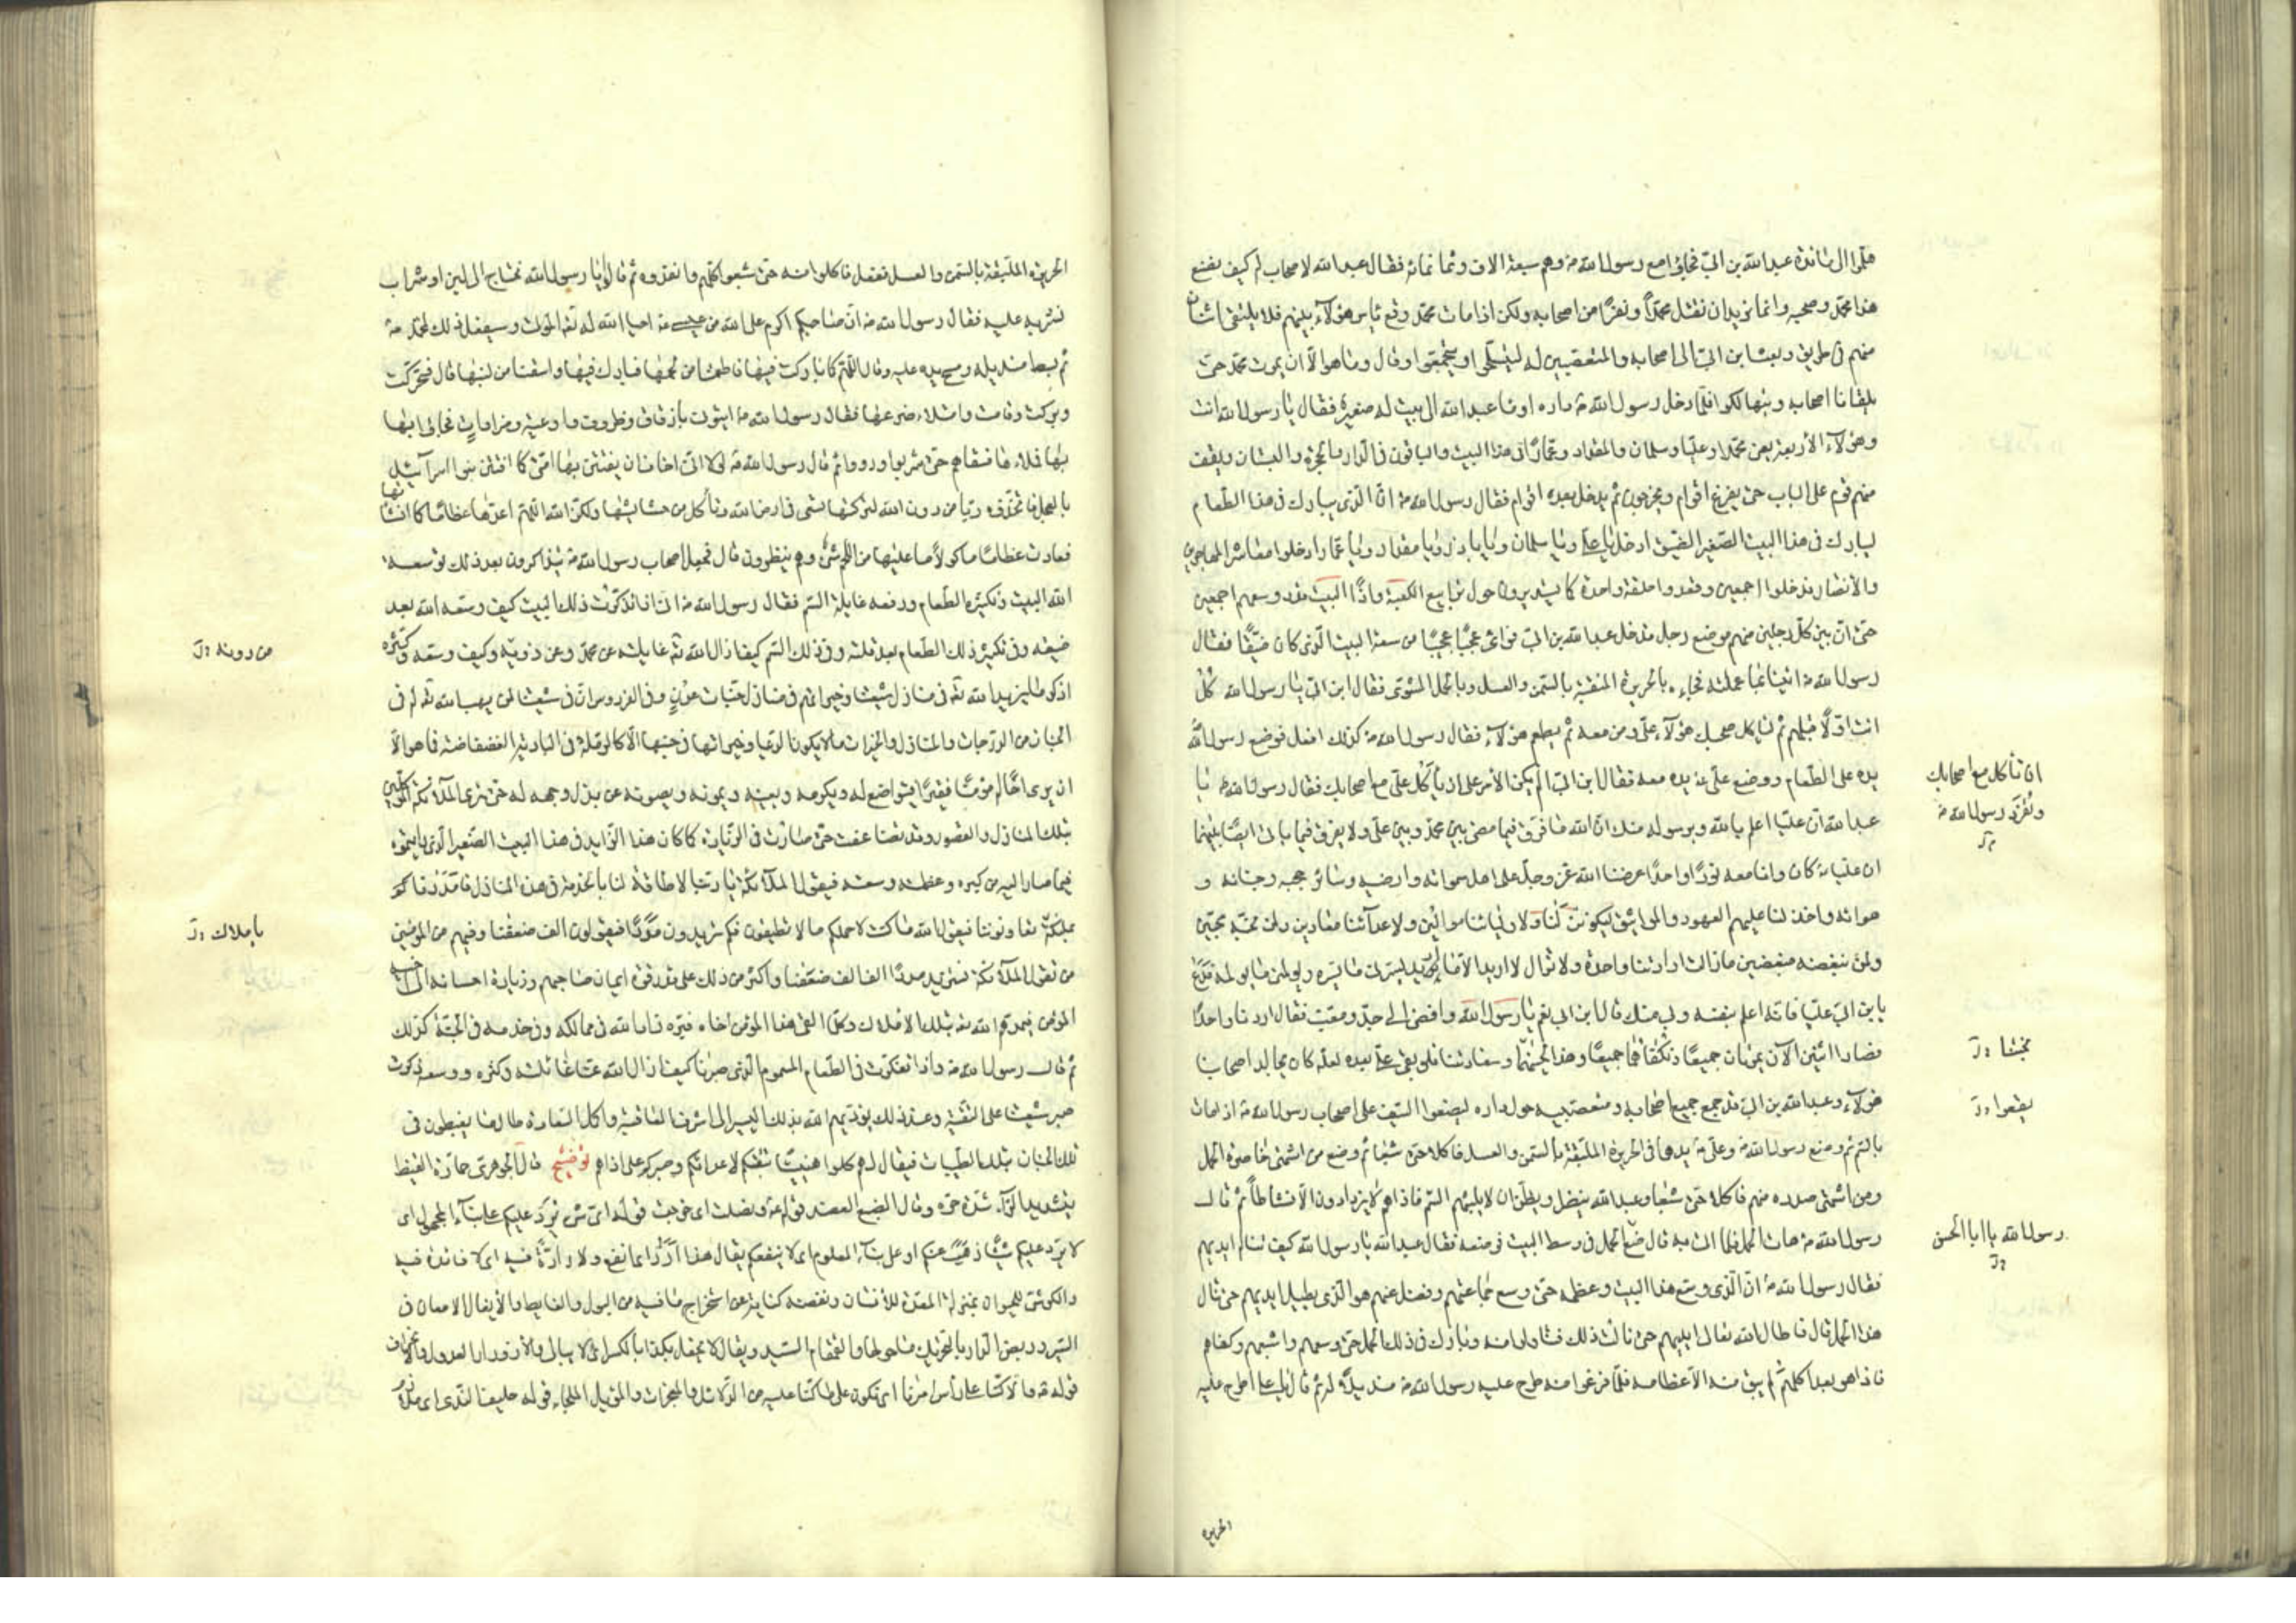 على الى مائدة عبد الله بن ابىّ فجاؤا مع رسول الله ص وهم سبعة الاف وثمانمائة فقال عبد الله لاصحابه كيف نصنع
هذا محمد وصحبه وانما نريد ان نقتل محمدًا ونفرًا من اصحابه ولكن اذا مات محمد وقع بأس هؤلاء بينهم فلا يلتقى اثنان
منهم فى طريق وبعث ابن ابىّ الى اصحابه والمتعصبين له ليتسلّحوا ويجتمعوا وقال وما هو الّا ان يموت محمد حتى
يلقانا اصحابه ويتهالكوا فلمّا دخل رسول الله ص داره اومأ عبد الله الى بيت له صغير فقال يا رسول الله انت
وهؤلاء الأربعة يعنى محمدا وعليّا وسلمان والمقداد وعمّارًا فى هذا البيت والباقون فى الدار والحجرة والبستان ويقف
منهم قوم على الباب حتى يفرغ اقوام ويخرجون ثم يدخل بعدهم اقوام فقال رسول الله ص انّ الّذى يبارك فى هذا الطّعام
ليبارك فى هذا البيت الصّغير الضّيق ادخل يا على ويا سلمان ويا ابا ذر ويا مقداد ويا عمّار ادخلوا معاشر المهاجرين
والأنصار فدخلوا اجمعين وقعدوا حلقة واحدة كما يستديرون حول ترابيع الكعبة واذا البيت قد وسعهم اجمعين
حتى انّ بين كلّ رجلين منهم موضع رجل فدخل عبد الله بن ابىّ فرأى عجبًا عجيبًا من سعة البيت الّذى كان ضيّقًا فقال
رسول الله ص ائتنا بما عملته فجاءه بالحريرة الملبّقة بالسّمن والعسل وبالحمل المشوى فقال ابن ابىّ يا رسول الله كل
انت اوّلًا قبلهم ثم ليأكل صحبك هؤلاء علىّ ومن معه ثم يطعم هؤلاء فقال رسول الله ص كذلك افعل فوضع رسول الله
يده على الطّعام ووضع علىّ ع يده معه فقال ابن ابىّ الم يكن الأمر على ان يأكل علىّ مع اصحابك فقال رسول الله ص يا
ان تأكل مع اصحابك
وتفرد رسول الله ص
عبد الله انّ عليّا اعلم بالله وبرسوله منك انّ الله ما فرّق فيما مضى بين محمّد وبين علىّ ولا يفرق فيما يأتى ايضًا بينهما
ان عليّا ع كان وانا معه نورًا واحدًا عرضنا الله عزّ وجلّ على اهل سمواته وارضيه وسائر حجبه وجنانه و
هوائه واخذ لنا عليهم العهود والمواثيق ليكوننّ لنا ولاوليائنا موالين ولاعدائنا معادين ولمن نحبّه محبّين
ولمن نبغضه مبغضين مازالت ارادتنا واحدة ولا تزال لا اريد الّا ما يريد ولا يريد الا ما اريد يسرّنى ما يسرّه ويؤلمنى ما يؤلمه فدع
يا ابن ابىّ عليّا فانّه اعلم بنفسه وبى منك قال ابن ابىّ نعم يا رسول الله وافضى الى جدّ ومعتّب فقال اردنا واحدًا
فصار اثنين الآن يموتان جميعًا ونكفاهما جميعًا وهذا لحينهما وسعادتنا فلو بقى على بعده لعلّه كان يجالد اصحابنا
هؤلاء وعبد الله بن ابىّ قد جمع جميع اصحابه ومتعصبيه حول داره ليضعوا السّيف على اصحاب رسول الله ص اذا مات
يقعوا
بالسّم ثم وضع رسول الله ص وعلىّ ع يدهما فى الحريرة الملبّقة بالسّمن والعسل فاكلا حتى شبعا ثم وضع من اشتهى خاصرة الحمل
ومن اشتهى صدره منهم فاكلا حتى شبعا وعبد الله ينظر ويظنّ ان لا يلبثهم السّم فاذا هم لا يزدادون الّا نشاطًا ثم قال
رسول الله ص هات الحمل فلمّا اتى به قال ضع الحمل فى وسط البيت فوضعه فقال عبد الله يا رسول الله كيف تناله ايديهم
رسول الله يا ابا الحسن
فقال رسول الله ص انّ الّذى وسّع هذا البيت وعظّمه حتى وسع جماعتهم وفضل عنهم هو الّذى يطيل ايديهم حتى تنال
هذا الحمل قال فاطال الله تعالى ايديهم حتى نالت ذلك فتناولوا منه وبارك فى ذلك الحمل حتى وسعهم واشبعهم وكفاهم
فاذا هو بعد اكلهم لم يبق منه الّا عظامه فلمّا فرغوا منه طرح عليه رسول الله ص منديلًا له ثم قال يا على اطرح عليه
الحريرة
الحريرة الملبّقة بالسّمن والعسل ففعل فاكلوا منه حتى شبعوا كلّهم وانفدوه ثم قالوا يا رسول الله نحتاج الى لبن او شراب
نشربه عليه فقال رسول الله ص انّ صاحبكم اكرم على الله من عيسى ع احيا الله له تعالى الموتى وسيفعل ذلك لمحمّد ص
ثم بسط منديله ومسح يده عليه وقال اللّهمّ كما باركت فيها فاطعمتنا من لحمها فبارك فيها واسقنا من لبنها قال فتحرّكت
وبركت وقامت وامتلاء ضرعها فقال رسول الله ص ائتونى بأزقاق وظروف واوعية ومزادات فجاؤا بها
فملأها فسقاهم حتى شربوا ورووا ثم قال رسول الله ص لولا انّى اخاف ان يفتتن بها امّتى كما افتتن بنو اسرائيل
بالعجل فاتّخذوه ربّا من دون الله لتركتها تسعى فى ارض الله وتأكل من حشايشها ولكن اللّهمّ اعدها عظامًا كما انشأتها
فعادت عظامًا مأكولًا ما عليها من اللّحم شىء وهم ينظرون قال فجعل اصحاب رسول الله ص يتذاكرون بعد ذلك توسعة
الله البيت وتكثيره الطّعام ودفعه غايلة السّم فقال رسول الله ص انّى اذا تذكّرت ذلك البيت كيف وسّعه الله بعد
ضيقه وفى تكثير ذلك الطّعام بعد قلّته وفى ذلك السّم كيف ازال الله تعالى غايلته عن محمّد وعن ذويه وكيف وسّعه وكثّره
من دونه
اذكر ما يزيد الله تعالى فى منازل شيعتنا وخيراتهم فى منازل جنّات عدن وفى الفردوس انّ فى شيعتنا لمن يهب الله تعالى له فى
الجنان من الدّرجات والمنازل والخيرات ما لا يكون الدّنيا وخيراتها فى جنبها الّا كالرملة فى البادية الفضفاضة فما هو الّا
ان يرى اخًا له مؤمنًا فقيرًا فيتواضع له ويكرمه ويعينه ويمونه ويصونه عن بذل وجهه له حتى يرى الملائكة الموكّلين
بتلك المنازل والقصور وقد تضاعفت حتى صارت فى الزّيادة كما كان هذا الزّايد فى هذا البيت الصّغير الّذى رأيتموه
فيما صار اليه من كبره وعظمه وسعته فيقول الملائكة يا ربّنا لا طاقة لنا بالخدمة فى هذه المنازل فامددنا
بملائكة يعاونوننا فيقول الله ما كنت لاحملكم ما لا تطيقون فكم تريدون مددًا فيقولون الف ضعفنا وفيهم من المؤمنين
باملاك
من تقول الملائكة نستزيد مددًا الف الف ضعفنا واكثر من ذلك على قدر قوّة ايمان صاحبهم وزيادة احسانه الى اخيه
المؤمن فيمدّهم الله تعالى بتلك الاملاك وكلّما لقى هذا المؤمن اخاه فبرّه زاده الله فى ممالكه وفى خدمه فى الجنّة كذلك
ثم قال رسول الله ص واذا تفكّرت فى الطّعام المسموم الّذى صبرنا كيف ازال الله عنّا غائلته وكثره ووسعه ذكرت
صبر شيعتنا على التّقيّة وعند ذلك يؤدّيهم الله بذلك الصبر الى اشرف العاقبة واكمل السّعادة طالما يغبطون فى
تلك الجنان بتلك الطّيبات فيقال لهم كلوا هنيئًا بتقيّتكم لاعدائكم وصبركم على اذاهم توضيح قال الجوهرى حمارّة القيظ
بتشديد الرّاء شدّة حرّه وقال الضبع العضد قوله ونضلت اى خرجت قوله اىّ شىء يردّ عليكم على بناء المجهول اى
لا يردّ عليكم شيئًا عنكم او على بناء المعلوم اى لا ينفعكم يقال هذا اردّ اى انفع ولا رادّة فيه اى لا فائدة فيه
والكرش للحيوان بمنزلة المعدة للأنسان ونفضه كناية عن استخراج ما فيه من البول والغايط والأيغال الامعان فى
السّير وربض الدار بالتحريك ما حولها والقمقام السّيد ويقال لا يحفل بكذا بالكسر اى لا يبالى والأزورار العدول والانحراف
قوله ع والّا كنّا على رأس امرنا اى نكون على ما كنّا عليه من الدّلائل والمعجزات والموئل الملجاء قوله حليف النّدى اى ملازم